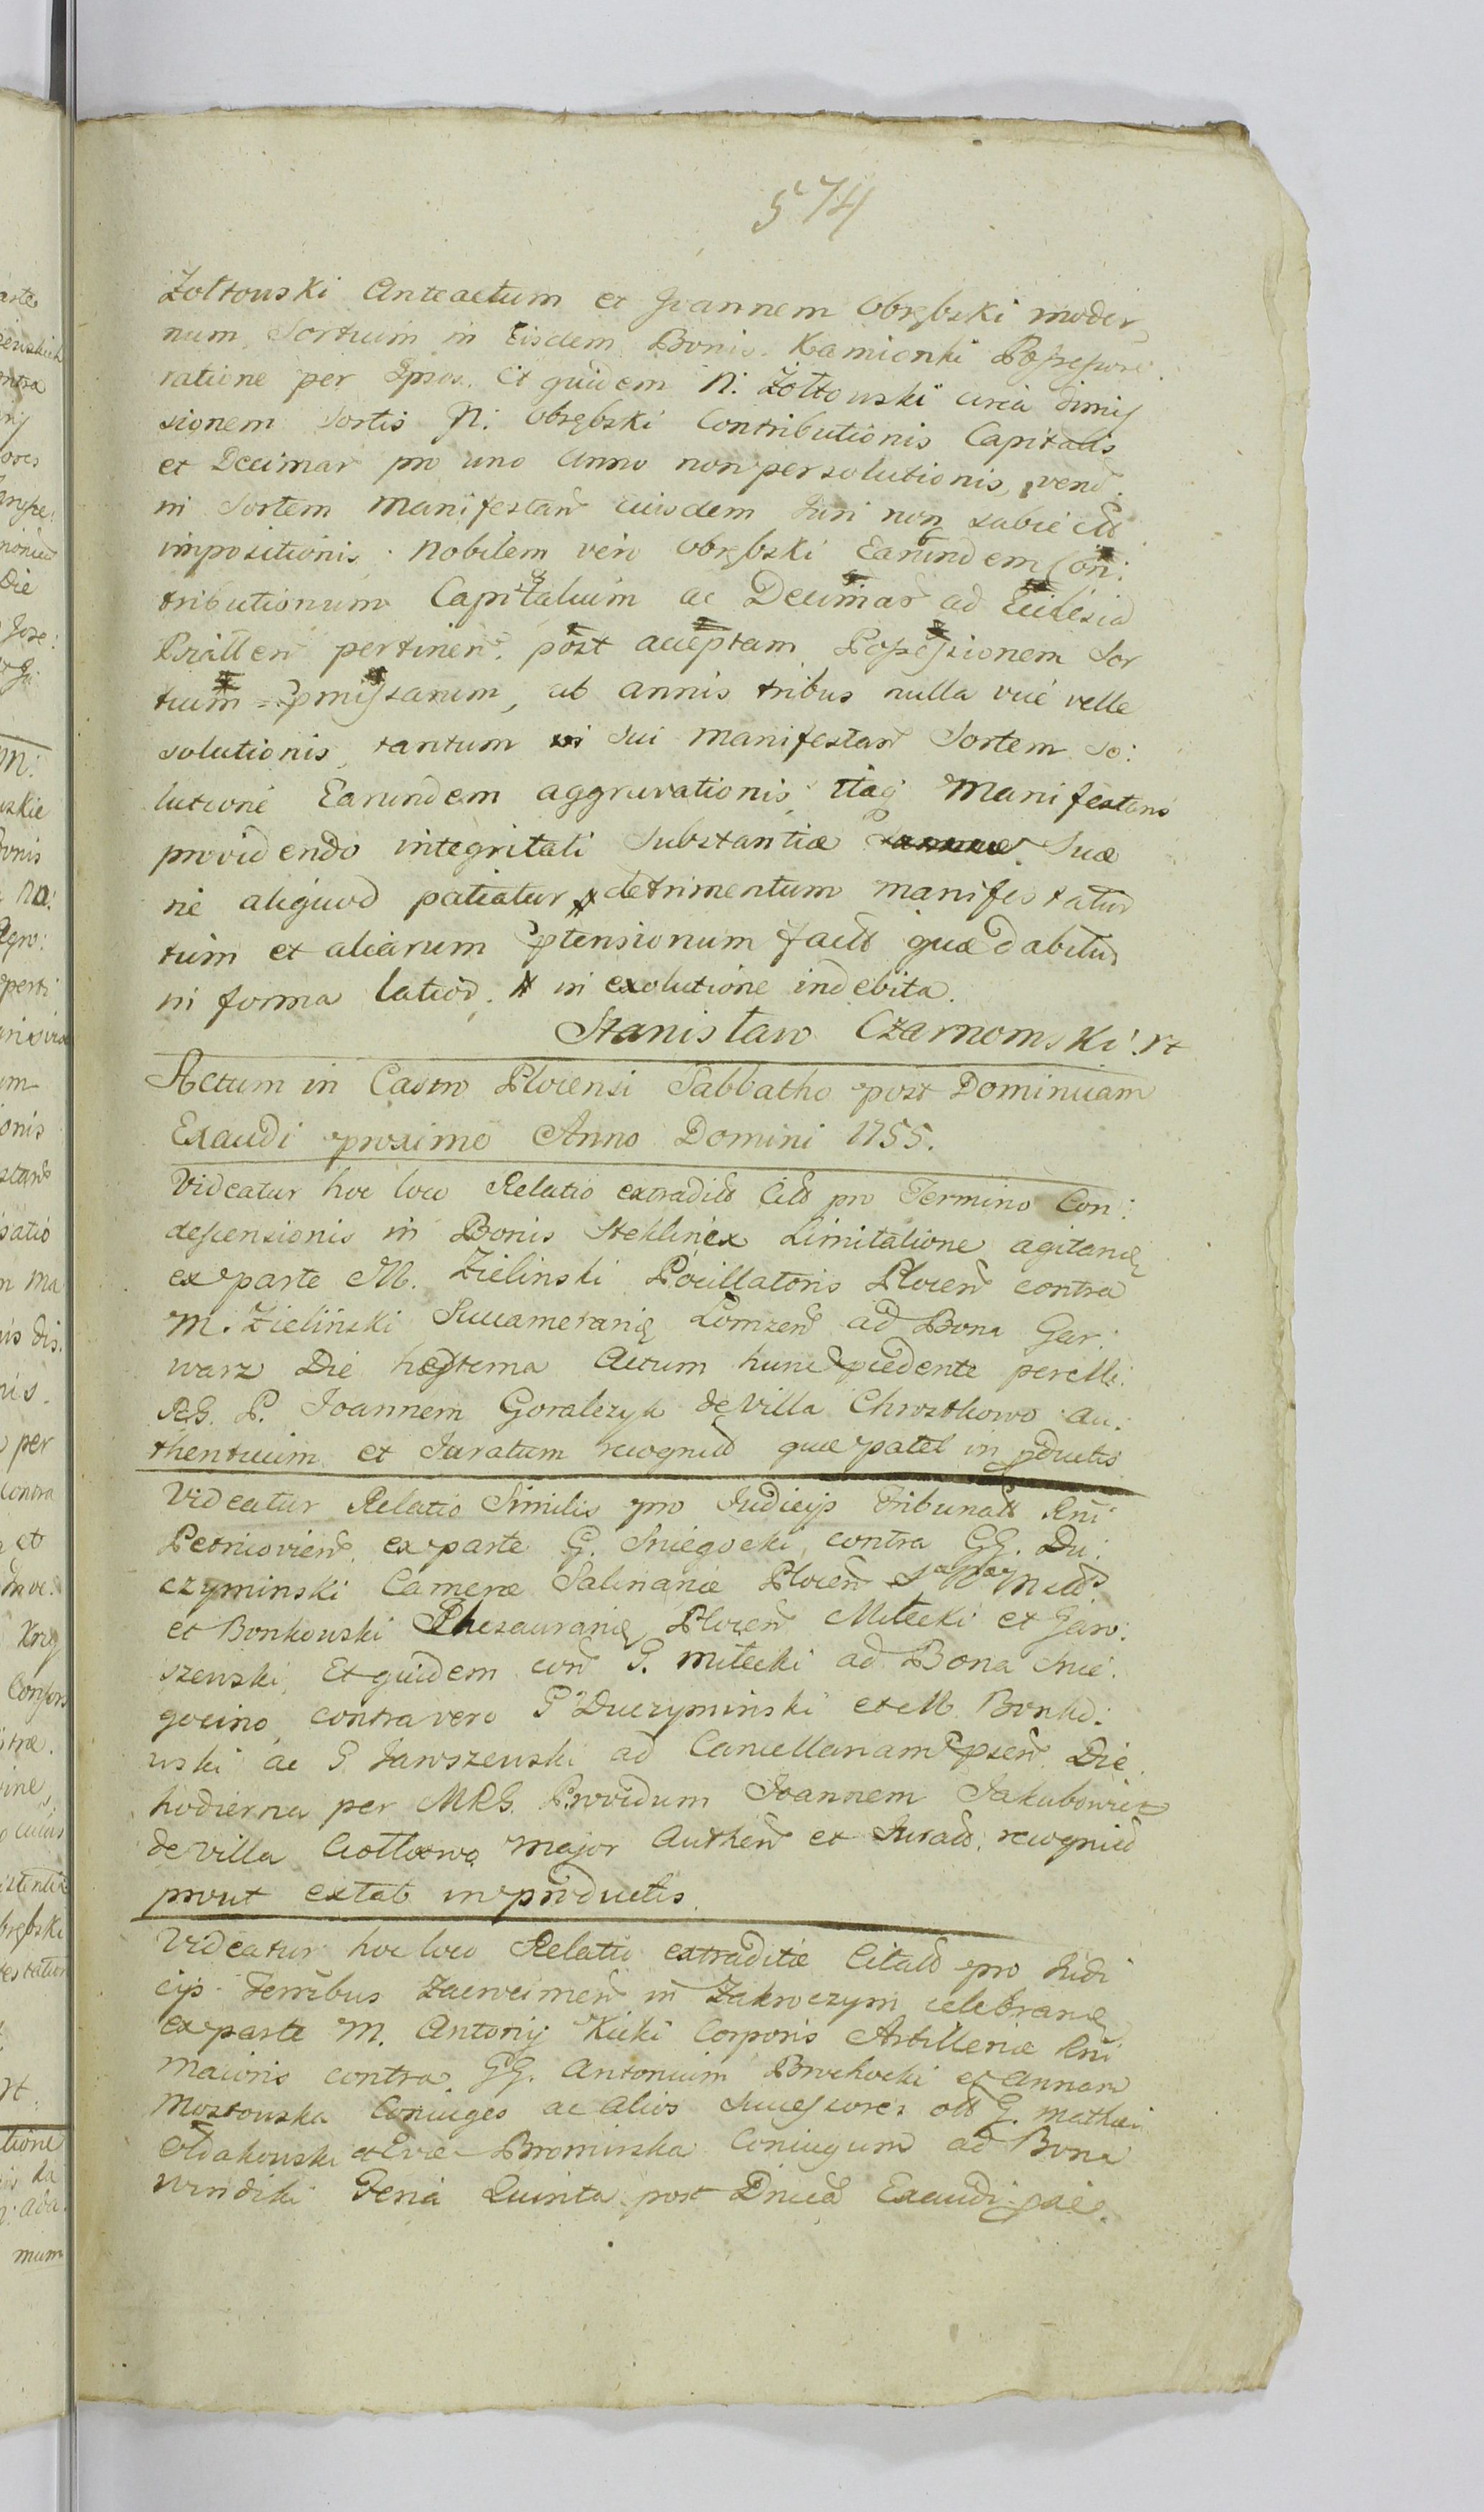 574
Zołtowski Anteactum et Joannem Obrębski moder
num Sortium in Eisdem Bonis Kamionki Possessore
ratione per Ipsos. Et quidem N: Zołtowski circa dimis
sionem Sortis N: Obrębski Contributionis Capitalis
et Decimar pro uno Anno non persolutionis,
in Sortem Manifestan cuisdem Juri non subiect
impositionis. Nobilem vero Obrębski Earundem Con:
tributionum Capitalium ac Decimar ad Ecclesia
pertinen. post acceptam Possessionem Sor
tium pmissarum, ab annis tribus nulla
solutionis, tantum in sui Manifestan Sortem so:
lutione Earundem aggravationis, itaq Manifestans
providendo integritati Substantiæ Suæ
ne aliquod patiatur detrimentum manifestatur
tum et aliarum ptensionum fact quæ dabitur
in forma latior. in exolutione indebita.
Stanisław Czarnomski
Actum in Castro Plocensi Sabbatho post Dominicam
Exaudi proximo Anno Domini 1755.
Videatur hoc loco Relatio extradit Citt pro Termino Con:
descensionis in Bonis Steklinex Limitatione agitan
ex parte M. Zielinski Pocillatoris Plocen contra
M. Zieliński Succamerarię Łomzen ad Bona Gar:
warz Die hesterna Actum hunc pcedente per Mi.
RG. P. Joannem Goralczyk de Villa Chrostkowo Au:
thenticum et Juratum recognit quæ patet in pductis
Videatur Relatio Similis pro Judicijs Tribunalt Rni
Petricovien ex parte G. Sniegocki, contra GG. Du:
czyminski Cameræ Salinariæ Plocen
et Bonkowski Thesaurarię Plocen Miłecki et Jaro:
szewski, Et quidem con G. Miłecki ad Bona Snie:
gocino, contra vero G Duczymiński et M Bonko:
wski ac G Jaroszewski ad Cancellariam psen Die
hodierna per MRG. Providum Joannem Jakubowicz
de Villa Ciottowo Major Authen et Jurat recognit
prout extat in productis.
Videatur hoc loco Relatio extraditæ Citatt pro Judi
cijs Terribus Zacrocimen in Zakroczym celebran
ex parte M. Antonij Kicki Corporis Artilleriæ Rni
Maioris contra GG. Antonium Brochocki et Annam
Mostowska Coniuges ac Alios Successores olt G. Mathæi
Ołdakowski et Evæ Brominska Coniugum ad Bona
Windiki Feria Quinta post Dnica Exaudi